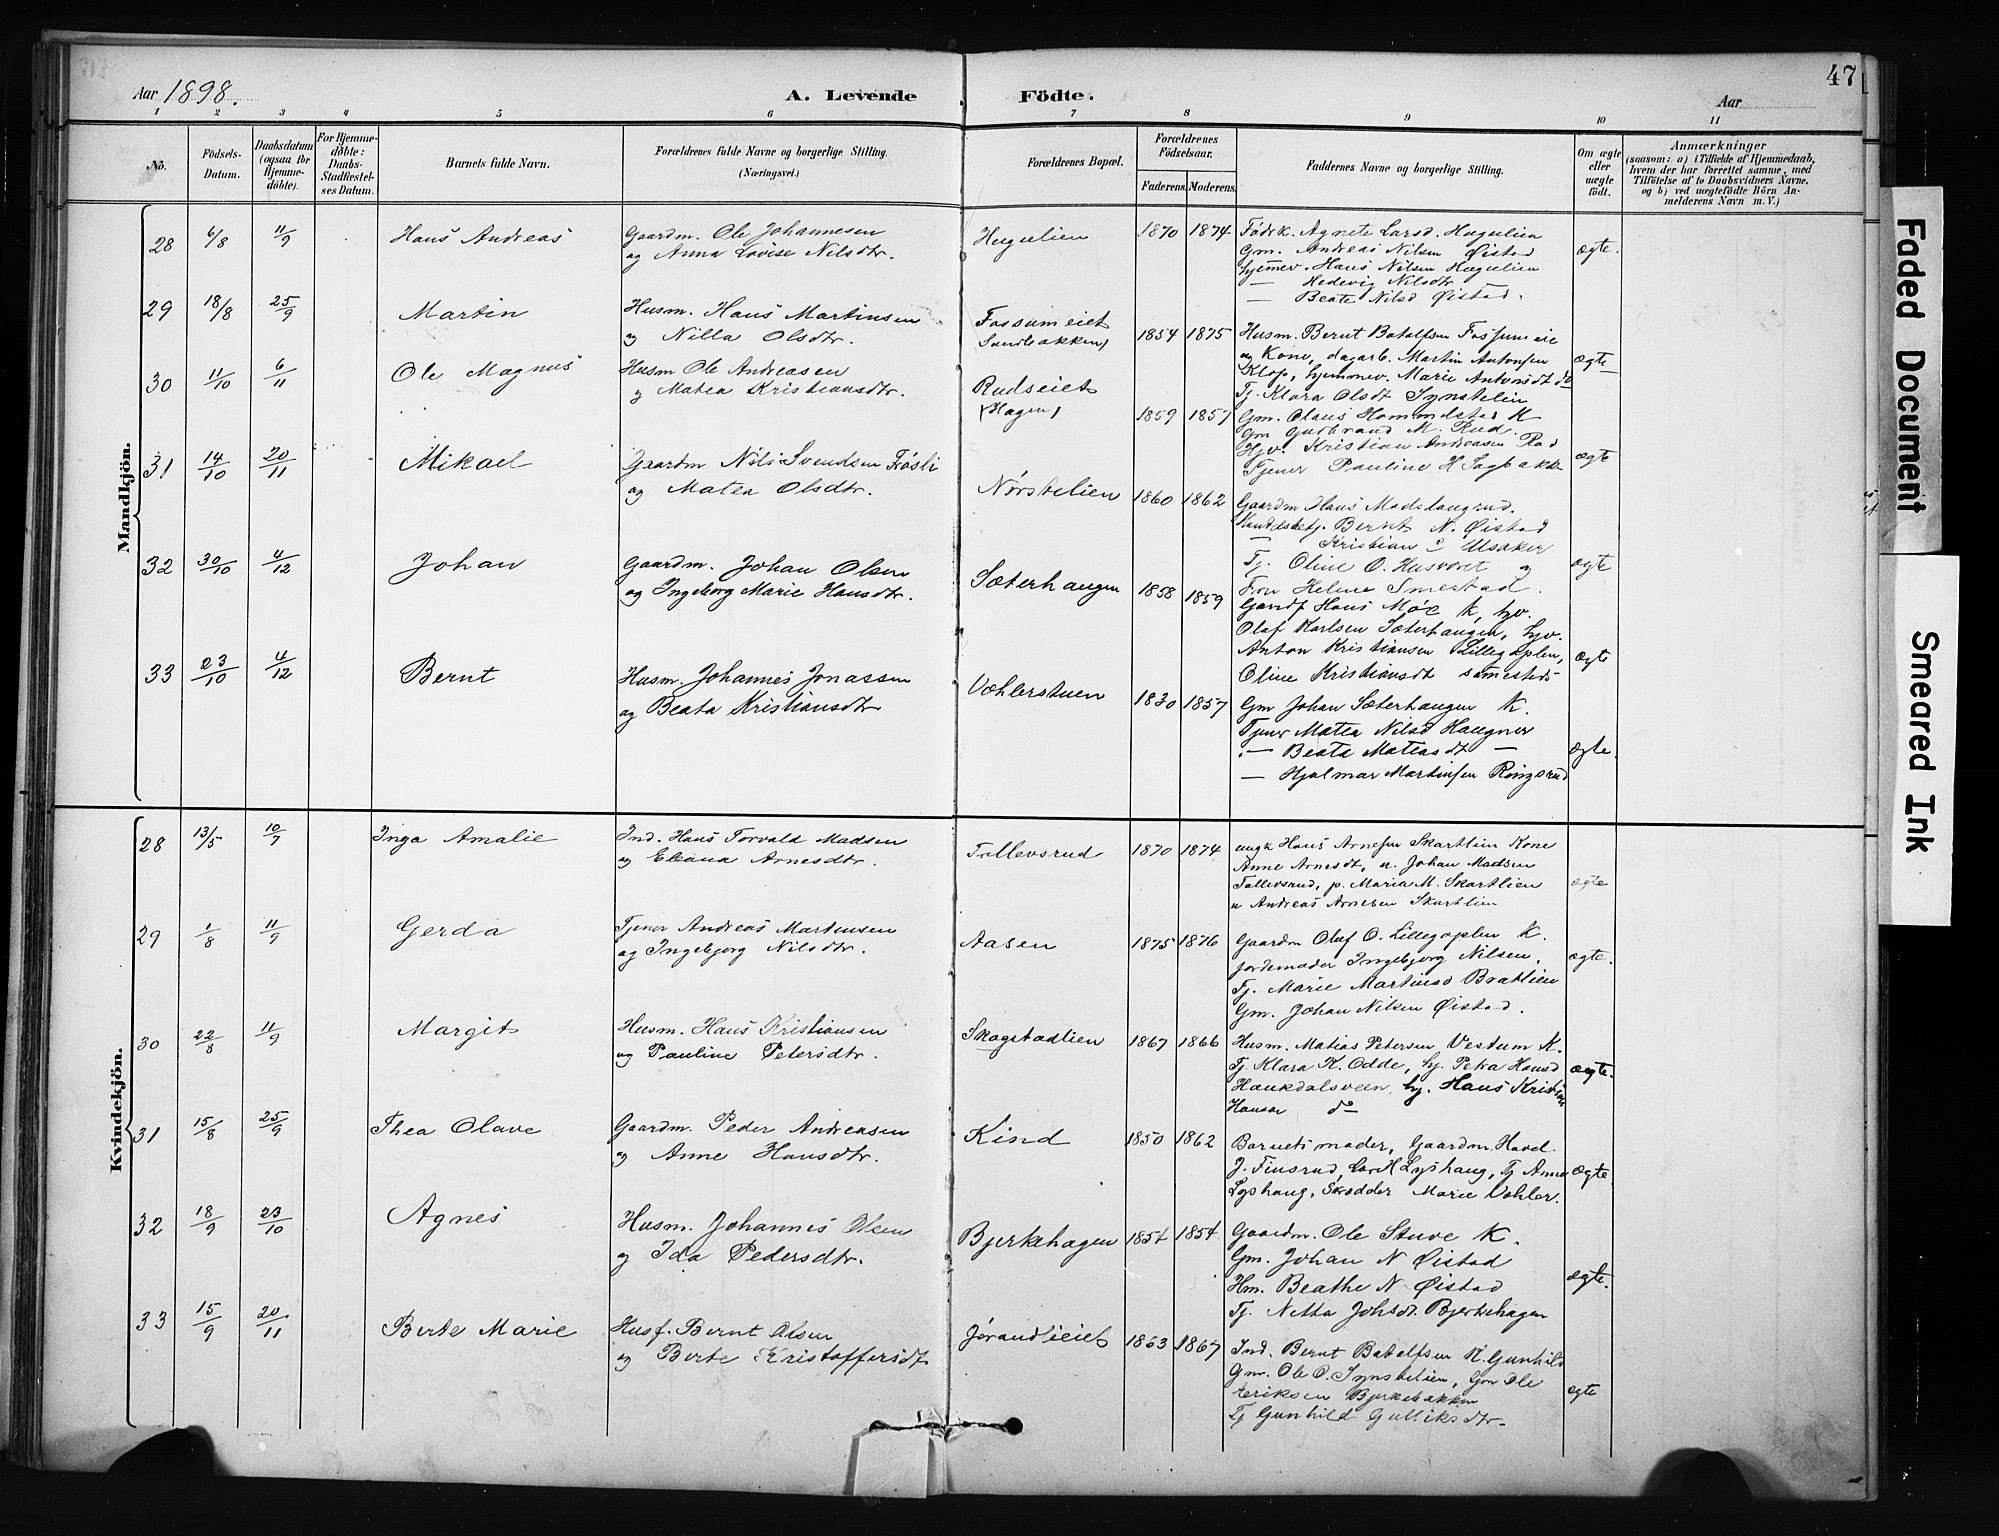 47
Aar 1898.
A. Levende Födte.
Aar
1 2 3 4 5 6 7 8 9 10 11
No.
Födsels-Datum.
Daabsdatum (ogsaa for Hjemme-döbte).
For Hjemme-döbte: Daabs-Stadfæstel-ses Datum.
Barnets fulde Navn.
Forældrenes fulde Navne og borgerlige Stilling. (Næringsvei.)
Forældrenes Bopæl.
Forældrenes Födselsaar.
Faderens. Moderens.
Faddernes Navne og borgerlige Stilling.
Om ægte eller uægte födt.
Anmærkninger
(saasom: a) i Tilfælde af Hjemmedaab, hvem der har forrettet samme, med Tilföielse af to Daabsvidners Navne, og b) ved uægtefödte Börn An-melderens Navn m. V.)
Mandkjön.
28 6/8 11/9 Hans Andreas
Gaardm. Ole Johannesen
og Anna Lovise Nilsdtr.
Hugulien 1870 1874
Agnete Larsd. Hugulien
Gm. Andreas Nilsen Øistad
Hjemev. Hans Nilsen Hugulien
— Hedevig Nilsdtr
— Beate Nilsd Øistad.
ægte.
29 18/8 25/9 Martin
Husm. Hans Martinsen
og Nilla Olsdtr.
Fossumeiet
Sandbakken)
1854 1875
Husm. Bernt Botolfsen Fossumeie
og Kone, dagarb. Martin Antonsen
Klop, hjemmev. Marie Antonsdt do
Tj. Klara Olsdt Synstelien
ægte
30 11/10 6/11 Ole Magnus
Husm Ole Andreasen
og Matea Kristiansdtr.
Rudseiet
(Hagen)
1859 1857
Gm. Olaus Hommelstad K
Gm Gudbrand M. Rud.
Hjv. Kristian Andreasen Rud
Tjener Pauline H Sagbakke
ægte
31 14/10 20/11 Mikael
Gaardm Nils Svendsen Frøsli
og Matea Olsdtr.
Nørstelien 1860 1862
Gaardm Hans Madslangrud.
Handelsbetj. Bernt N. Øistad
— Kristian Ulsaker
Tj. Oline O. Husværet og
Fru Helene Smestad.
ægte
32 30/10 4/12 Johan
Gaardm. Johan Olsen
og Ingeborg Marie Hansdtr.
Sæterhaugen 1858 1859
Hans Moe K, hjv.
Olaf Karlsen Sæterhaugen, hjv.
Anton Kristiansen Lillegoplen,
Oline Kristiansdt samesteds
ægte
33 23/10 4/12 Bernt
Husm. Johannes Jonassen
og Beata Kristiansdtr
Væhlerstuen 1830 1857
Gm Johan Sæterhaugen K.
Tjener Matea Nilsd Haugner
— Beata Mateasdt —
— Hjalmar Martinsen Ringsrud
ægte.
Kvindekjön.
28 13/5 10/7 Inga Amalie
Ind. Hans Torvald Madsen
og Eliana Arnesdtr.
Tollevsrud 1870 1874
ungk Hans Arnesen Skartlien Kone
Anne Arnesdt, u. Johan Madsen
Tollevsrud, p. Maria M. Skartlien
u Andreas Arnesen Skartlien
ægte
29 1/8 11/9 Gerda
Tjener Andreas Martinsen
og Ingebjorg Nilsdtr.
Aasen 1875 1876
Gaardm Oluf O. Lillegoplen K.
jordemoder Ingebjorg Nilsen,
Tj. Marie Martinsd Bratlien
Gm. Johan Nilsen Øistad.
ægte.
30 22/8 11/9 Margit
Husm. Hans Kristiansen
og Pauline Petersdtr.
Skogstadlien 1867 1866
Husm. Matias Petersen Vestum K.
Tj Klara K. Odde, hj. Petra Hansd
Haukdalsveen, hj. Hans Kristian
Hansen do
ægte.
31 15/8 25/9 Thea Olave
Gaardm. Peder Andreasen
og Anne Hansdtr.
Kind 1850 1862
Barnets moder, Gaardm. Havel
J. Finsrud, Lars H Lyshaug, Tj Anne
Lyshaug, Skrædder Marie Væhler.
ægte.
32 18/9 23/10 Agnes
Husm. Johannes Olsen
og Ida Pedersdtr.
Bjerkehagen 1854 1854
Gaardm. Ole Stuve K.
Gm. Johan N Øistad
Hm. Beathe N Øistad
Tj. Netta Johsdt. Bjerkehagen
ægte.
33 15/9 20/11 Berte Marie
Husf. Bernt Olsen
og Berte Kristoffersdt
Jørandlieiet 1863 1867
Ind. Bernt Botolfsen K. Gunhild
Gm. Ole O. Synstelien, Gm Ole
Eriksen Bjerkebakken
Tj Gunhild Gulliksdtr.
ægte
Faded Document
Smeared Ink